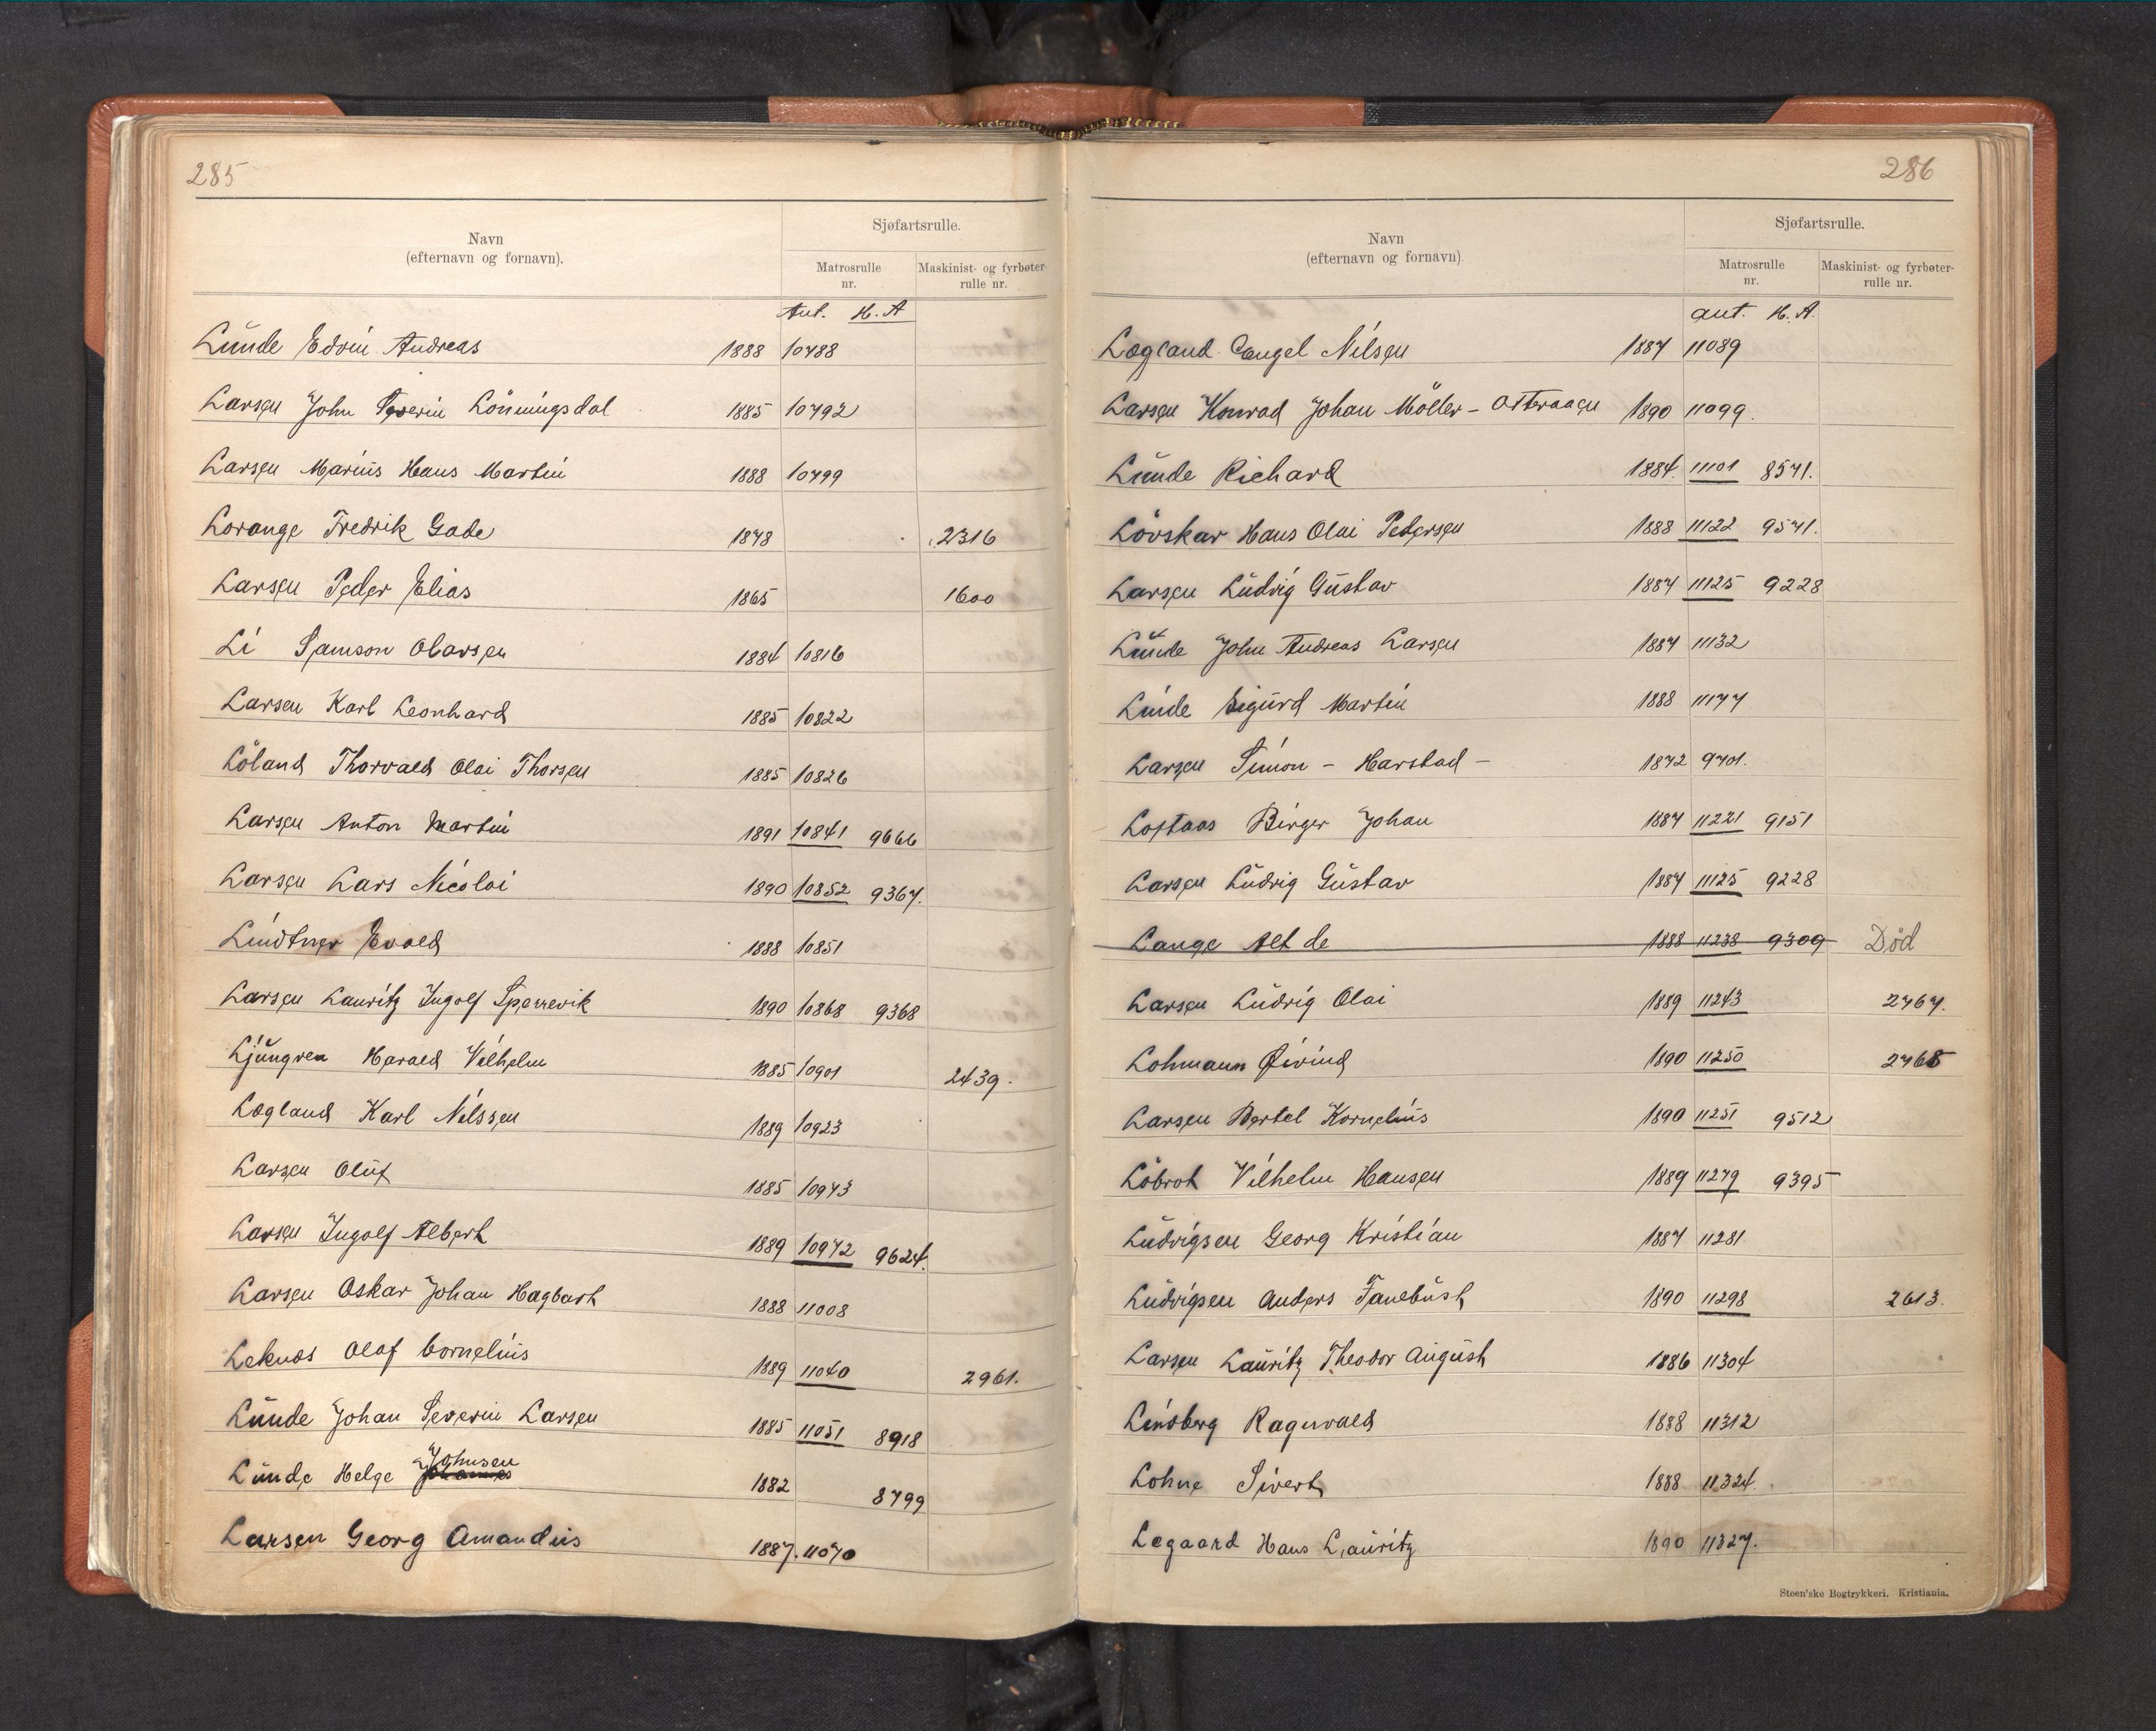 285
Sjøfartsrulle.
Navn
(efternavn og fornavn).
Matrosrulle
nr.
Maskinist- og fyrbøter-
rulle nr.
Ant. H. A
Lunde Edvin Andreas 1888 10788
Larsen John Severin Lönningsdal 1885 10792
Larsen Marius Hans Martin 1888 10799
Lorange Fredrik Gade 1878 2316
Larsen Peder Elias 1865 1600
Li Samson Olarsen 1884 10816
Larsen Karl Leonhard 1885 10822
Löland Thorvald Olai Thorsen 1885 10826
Larsen Anton Martin 1891 10841 9666
Larsen Lars Nicolai 1890 10852 9367.
Lindtner Evald 1888 10851
Larsen Lauritz Ingolf Sparrevik 1890 10868 9368
Ljungren Harald Vilhelm 1885 10901 2439.
Lægland Karl Nilssen 1889 10923
Larsen Oluf 1885 10973
Larsen Ingolf Albert 1889 10972 9624.
Larsen Oskar Johan Hagbart 1888 11008
Leknæs Olaf Cornelius 1889 11040 2961.
Lunde Johan Severin Larsen 1885 11051 8918
Lunde Helge Johnsen 1882 8799
Larsen Georg Amandus 1887. 11070
286
Sjøfartsrulle.
Navn
(efternavn og fornavn).
Matrosrulle
nr.
Maskinist- og fyrbøter-
rulle nr.
Ant. H. A.
Lægland Engel Nilsen 1887 11089
Larsen Konrad Johan Möller - Osteraaen 1890 11099.
Lunde Richard 1884. 11101 8571.
Lövskar Hans Olai Pedersen 1888 11122 9571.
Larsen Ludvig Gustav 1887 11125 9228
Lunde John Andreas Larsen 1887 11132
Linde Sigurd Martin 1888 11177
Larsen Simon - Harstad - 1872 9701.
Loftaas Birger Johan 1887 11221 9151
Larsen Ludvig Gustav 1887 11125 9228
Lange Alf de 1888 11238 9309 Død
Larsen Ludvig Olai 1889 11243 2767.
Lohmann Øivind 1890 11250 2768
Larsen Bertel Kornelius 1890 11251 9512
Löbrot Vilhelm Hansen 1889 11279 9395
Ludvigsen Georg Kristian 1887 11281
Ludvigsen Anders Fanebust 1890 11298 2613.
Larsen Lauritz Theodor August 1886 11304
Lindberg Ragnvald 1888 11312
Lohne Sivert 1888 11324.
Legaard Hans Lauritz 1890 11327.
Steen'ske Bogtrykkeri. Kristiania.